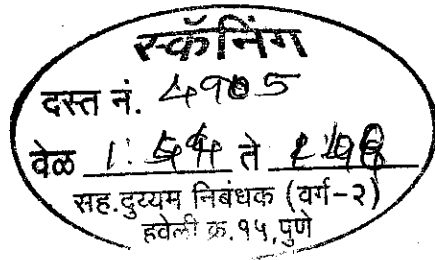 स्कॅनिंग
दस्त नं. 4905
वेळ ते
सह.दुय्यम निबंधक (वर्ग-२)
हवेली क्र.१५,पुणे